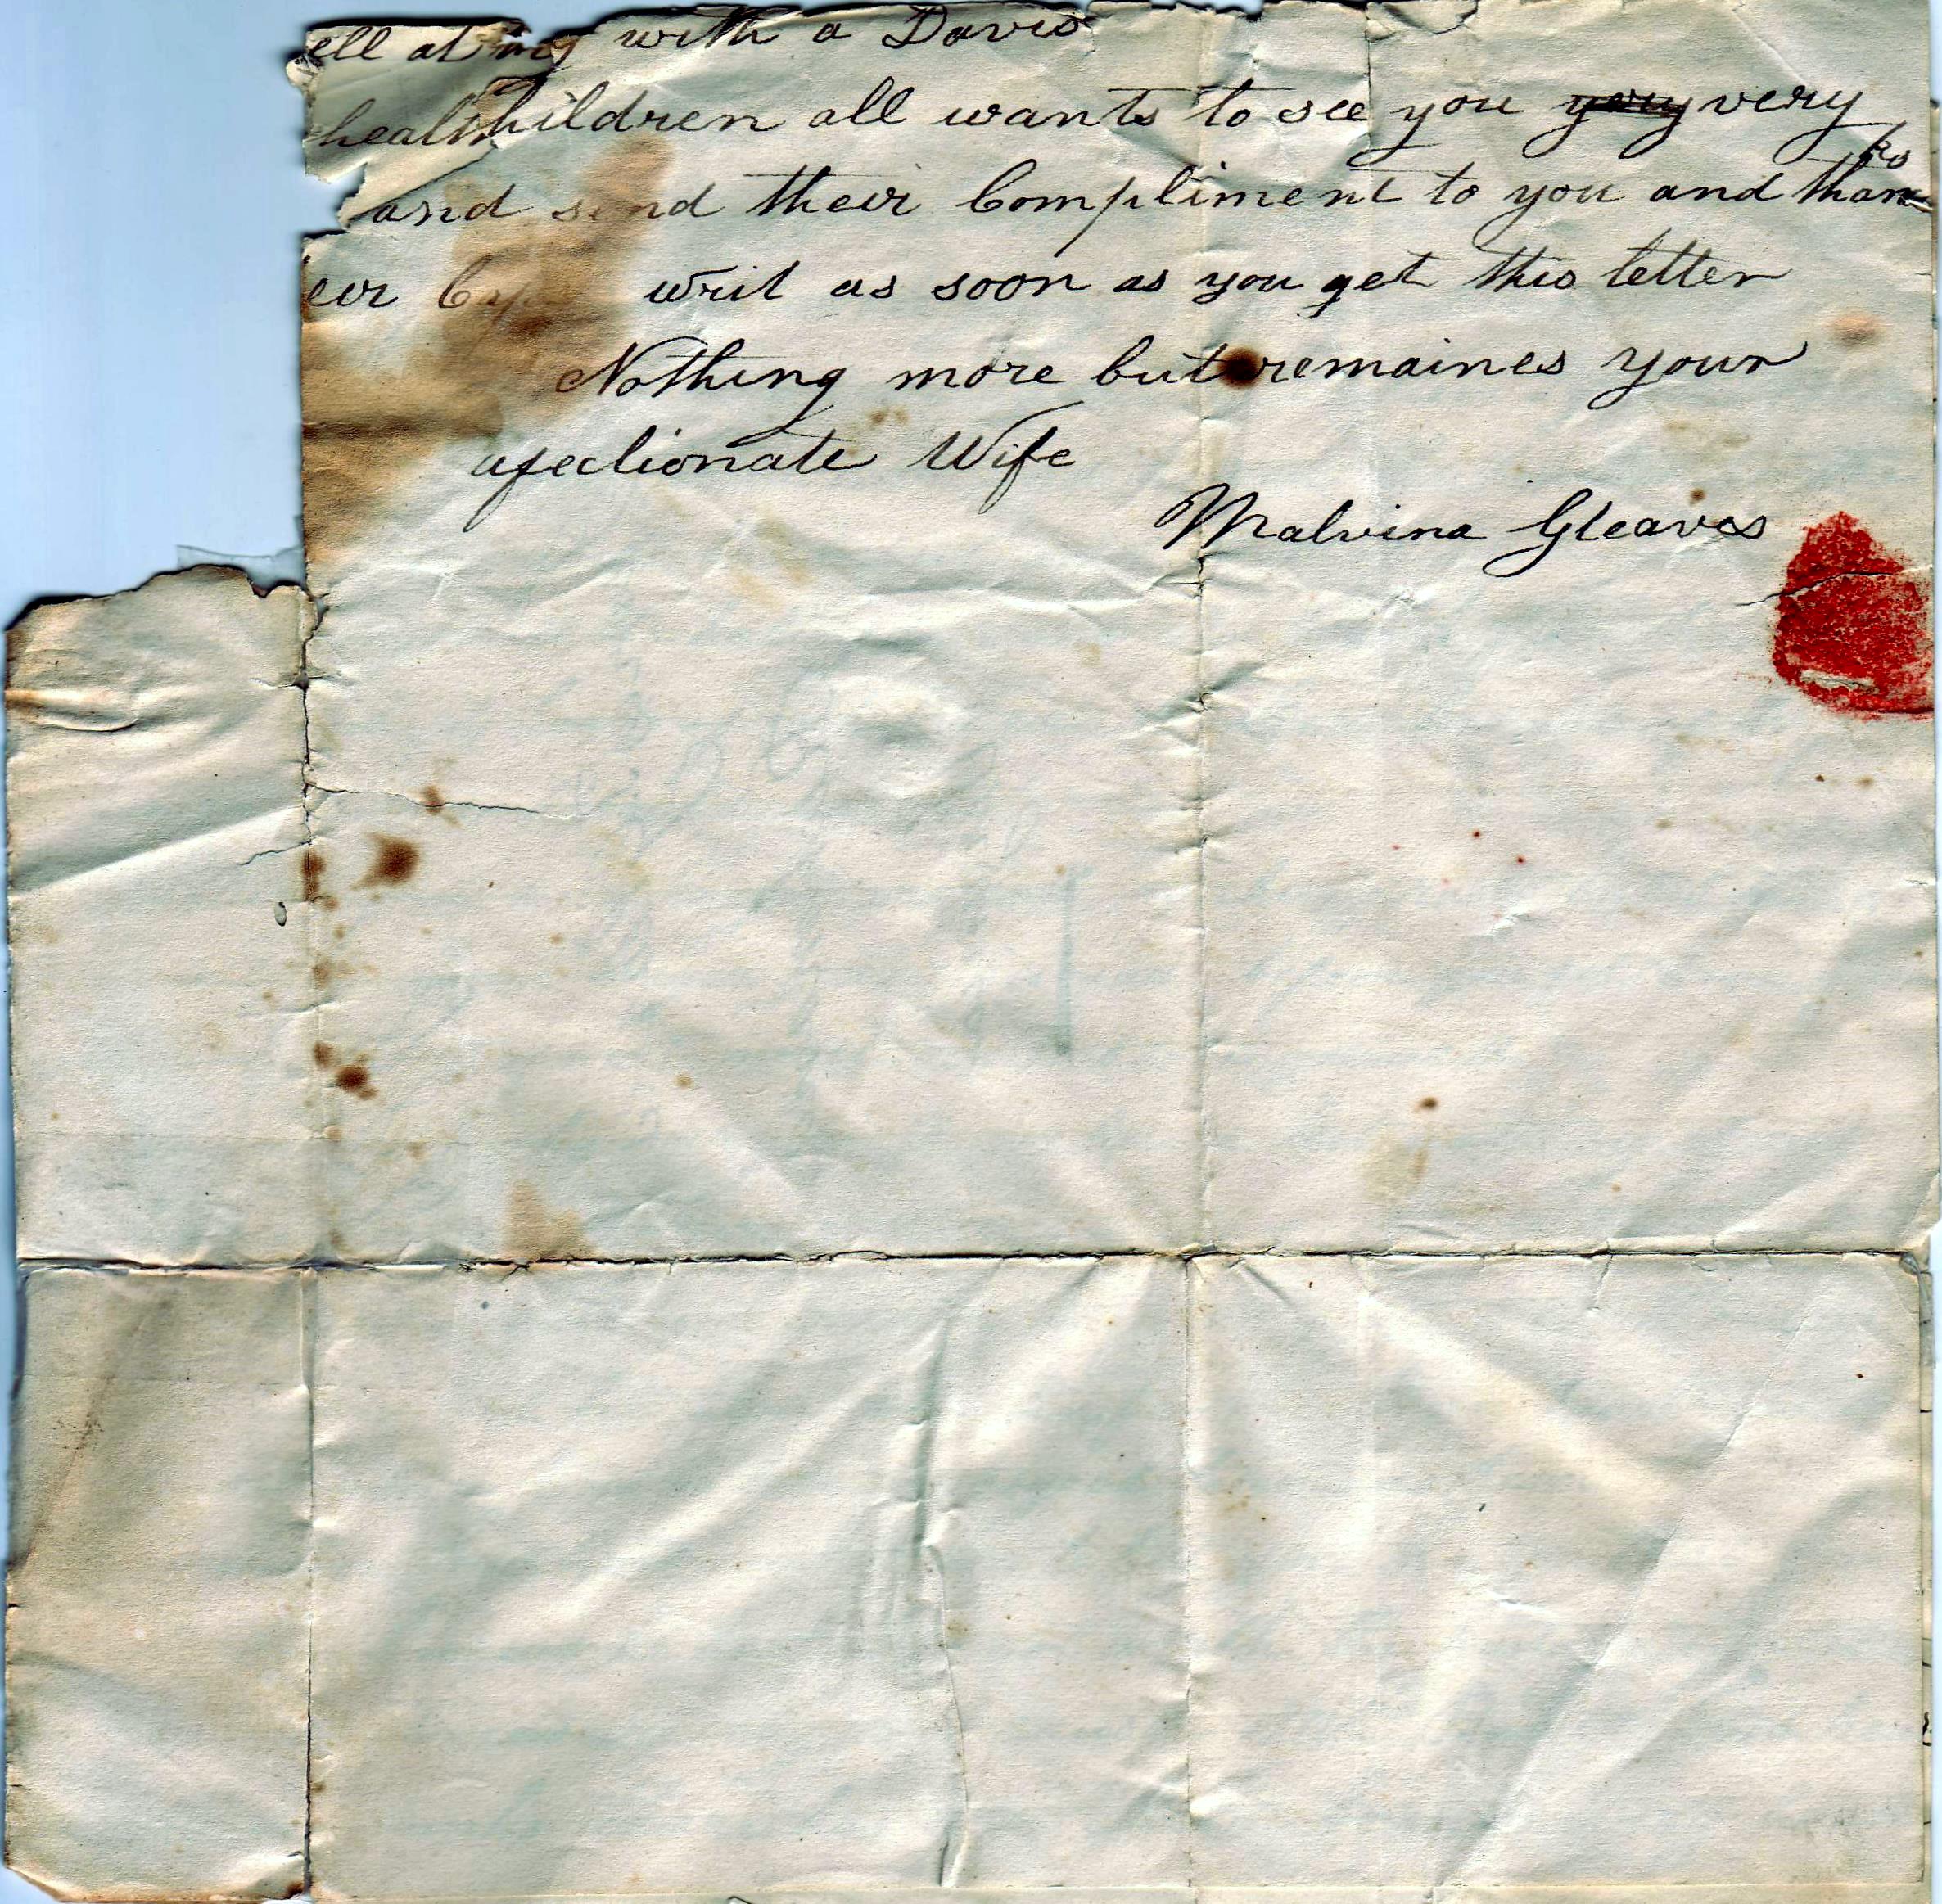 ell at my with a Davis
health hildren all wants to see you very very
and send their Compliment to you and thanks
eir writ as soon as you get this letter
Nothing more but remaines your
afectionate Wife
Malvina Gleaves